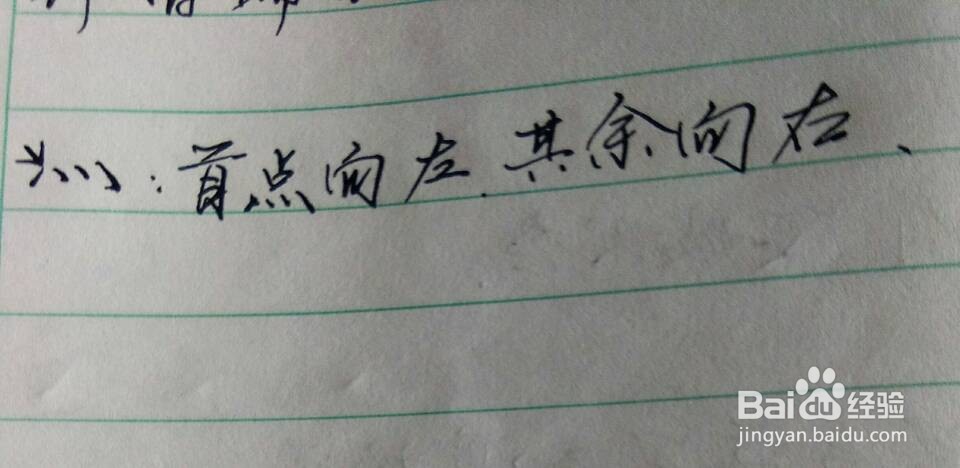 灬：首点向左.其余向右、
Baidu经验
jingyan.baidu.com